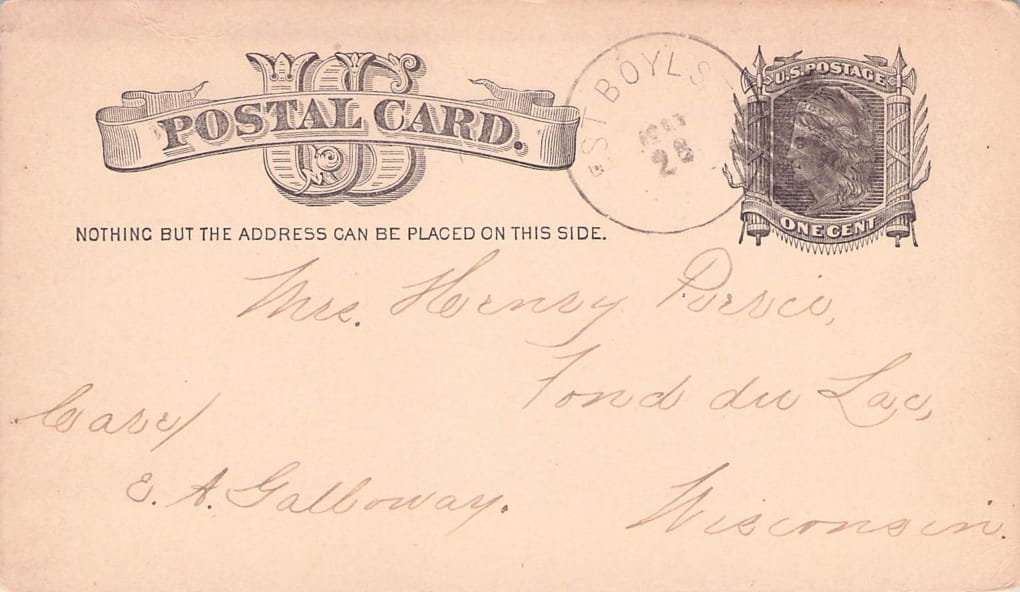 US
POSTAL CARD.
NOTHING BUT THE ADDRESS CAN BE PLACED ON THIS SIDE.
EST BOYLS
28
U.S. POSTAGE
ONE CENT
Mrs. Henry Pierce,
Fond du Lac,
Care/
E. A. Galloway.
Wisconsin.